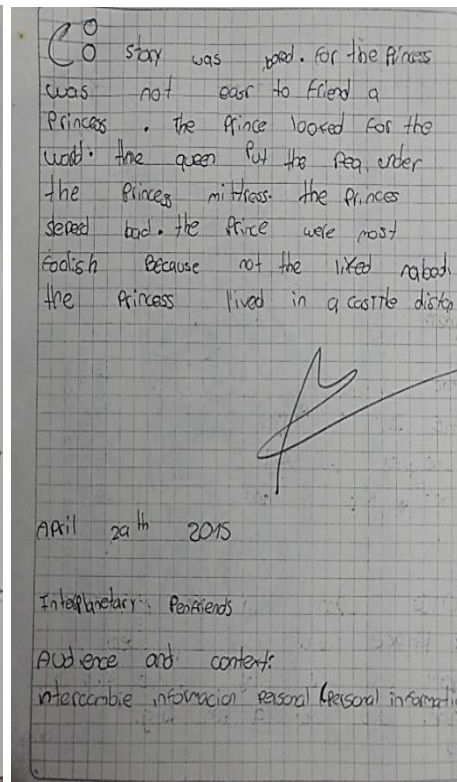 story was bored. for the Princess
was not easr to friend a
Princess. the Prince looked for the
world. the queen Put the Pea under
the Princes mittress. the Princes
sleped bad. the Prince were most
foolish Because not the liked nabadi
the Princess lived in a castle
April 29th 2015
Interplanetary: Penfriends
Audience and context:
intercambie informacion Personal (Personal informati